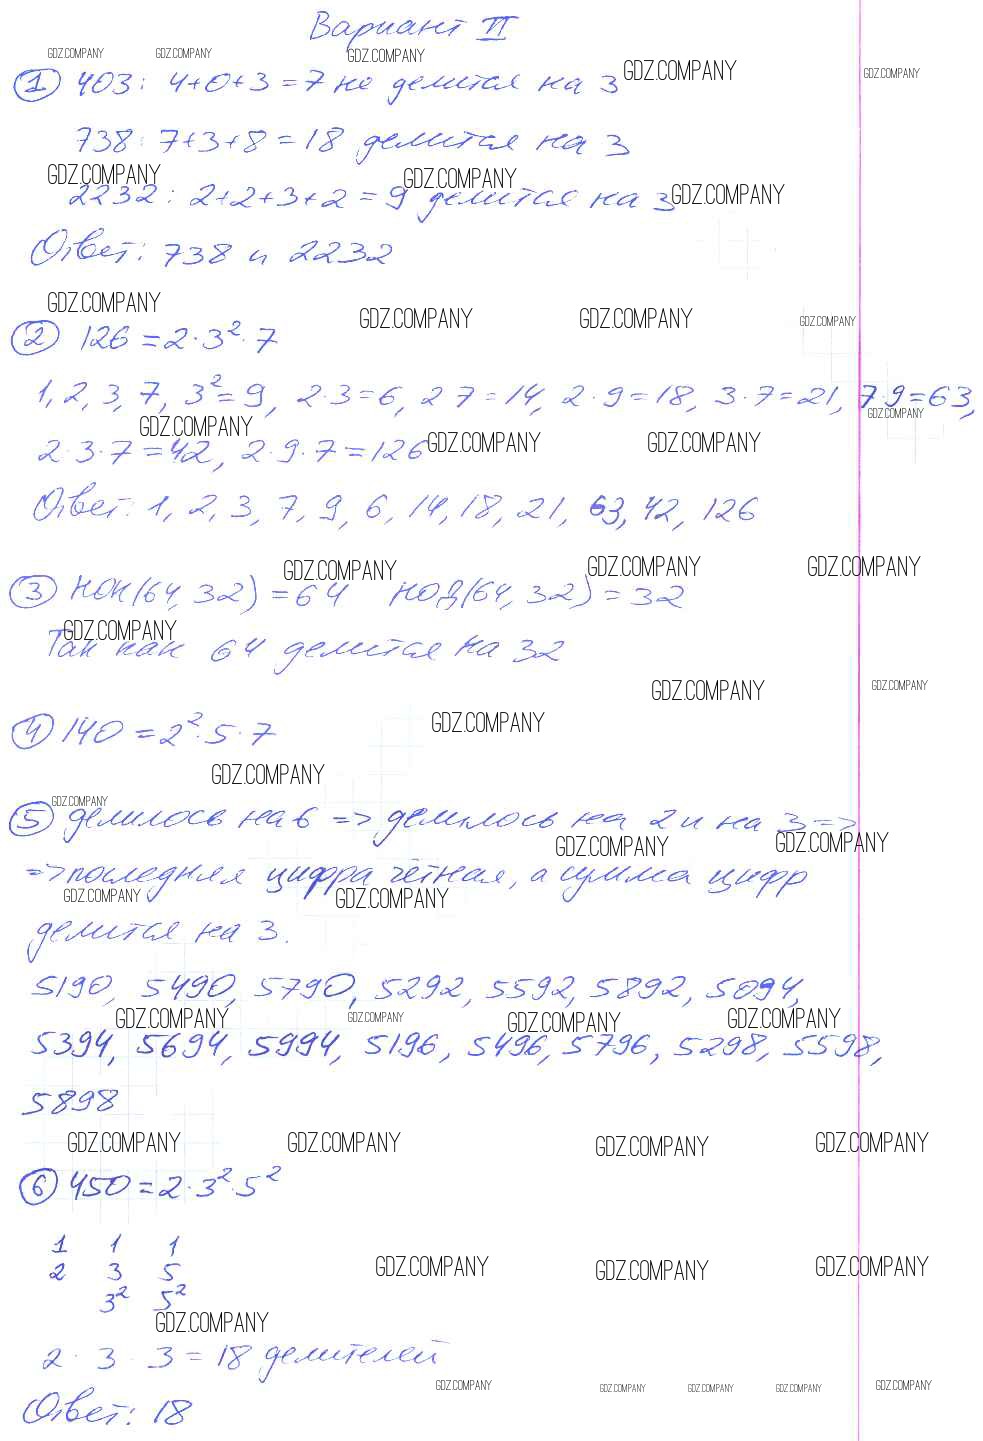 Вариант II
GDZ.COMPANY GDZ.COMPANY GDZ.COMPANY GDZ.COMPANY GDZ.COMPANY
① 403: 4+0+3=7 не делится на 3
738: 7+3+8=18 делится на 3
GDZ.COMPANY GDZ.COMPANY GDZ.COMPANY
2232: 2+2+3+2=9 делится на 3
Ответ: 738 и 2232
GDZ.COMPANY GDZ.COMPANY GDZ.COMPANY GDZ.COMPANY
② 126=2·3²·7
1, 2, 3, 7, 3²=9, 2·3=6, 2 7=14, 2·9=18, 3·7=21, 7·9=63,
GDZ.COMPANY GDZ.COMPANY GDZ.COMPANY GDZ.COMPANY
2·3·7=42, 2·9·7=126
Ответ: 1, 2, 3, 7, 9, 6, 14, 18, 21, 63, 42, 126
GDZ.COMPANY GDZ.COMPANY GDZ.COMPANY
③ НОК(64, 32)=64 НОД(64, 32)=32
GDZ.COMPANY
Так как 64 делится на 32
GDZ.COMPANY GDZ.COMPANY
④ 140=2²·5·7 GDZ.COMPANY
GDZ.COMPANY
GDZ.COMPANY
⑤ делилось на 6 => делилось на 2 и на 3 =>
GDZ.COMPANY GDZ.COMPANY
=> последняя цифра чётная, а сумма цифр
GDZ.COMPANY GDZ.COMPANY
делится на 3.
5190, 5490, 5790, 5292, 5592, 5892, 5094,
GDZ.COMPANY GDZ.COMPANY GDZ.COMPANY GDZ.COMPANY
5394, 5694, 5994, 5196, 5496, 5796, 5298, 5598,
5898
GDZ.COMPANY GDZ.COMPANY GDZ.COMPANY GDZ.COMPANY
⑥ 450=2·3²·5²
1 1 1
2 3 5
GDZ.COMPANY GDZ.COMPANY GDZ.COMPANY
3² 5²
GDZ.COMPANY
2 · 3 · 3=18 делителей
GDZ.COMPANY GDZ.COMPANY GDZ.COMPANY GDZ.COMPANY GDZ.COMPANY
Ответ: 18